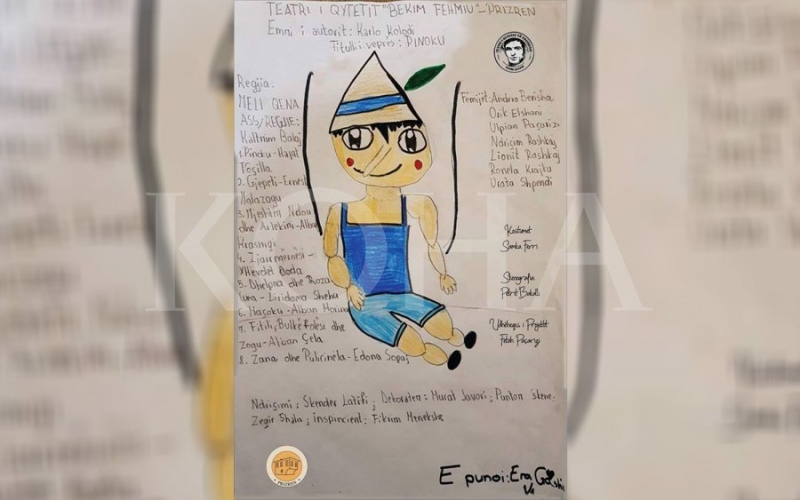 TEATRI I QYTETIT "BEKIM FEHMIU" - PRIZREN
Emri i autorit: Karlo Kolodi
Titulli i veprës: PINOKU
Regjia:
MELI QENA
ASS/REGJIE:
Kaltrim Balaj
1. Pinoku - Hajat
Toçilla
2. Gjepeti - Ernest
Malazogu
3. Mjeshtri Ndou
dhe Arlekini - Alban
Krasniqi
4. Zjarrmëniesi -
Mevdet Doda
5. Dhelpna dhe Roza
luna - Liridona Shehu
6. Maçoku - Alban
7. Fitili, dhe
Zogu - Alban Çela
8. Zana dhe Pulicinela - Edona Sopaj
Fëmijët: Andrra Berisha
Orik Elshani
Ulpian Paçarizi
Ndriçim Rashkaj
Lionit Rashkaj
Ronela Krajku
Urata Shpendi
Kostumet
Samka Ferri
Skenografia
Petrit Bakalli
Udhëheqës i Projektit
Fatih Paçarizi
KOHA
Ndriçimi: Skender Latifi; Dekoraten: Murat Javori; Punton skene:
Zeqir Shala; inspincient: Fikrim Menekshe
E punoi: Era